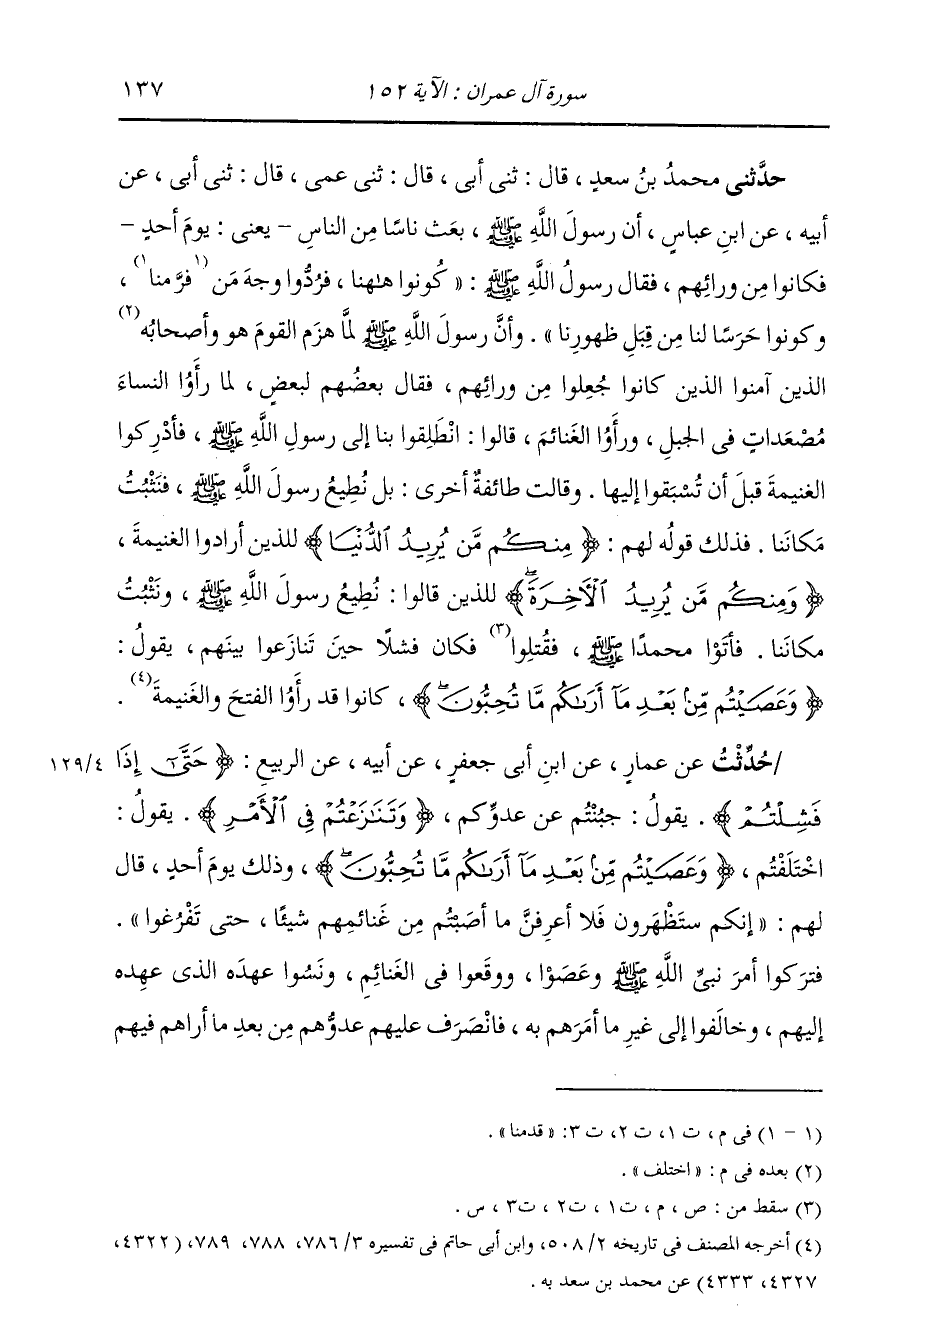 سورة آل عمران : الآية ١٥٢ ١٣٧
حدَّثنى محمدُ بنُ سعدٍ ، قال : ثنى أبى ، قال : ثنى عمى ، قال : ثنى أبى ، عن
أبيه ، عن ابنِ عباسٍ ، أن رسولَ اللَّهِ ﷺ ، بعَث ناسًا مِن الناسِ - يعنى : يومَ أحدٍ -
فكانوا مِن ورائِهم ، فقال رسولُ اللَّهِ ﷺ : « كُونوا هلهنا ، فرُدُّوا وجهَ مَن (١ فرَّ منا ١) ،
وكونوا حَرَسًا لنا مِن قِبَلِ ظهورِنا » . وأنَّ رسولَ اللَّهِ ﷺ لمَّا هزَم القومَ هو وأصحابُه (٢)
الذين آمنوا الذين كانوا جُعِلوا مِن ورائِهم ، فقال بعضُهم لبعضٍ ، لما رأَوُا النساءَ
مُصْعَداتٍ فى الجبلِ ، ورأَوُا الغَنائمَ ، قالوا : انْطَلِقوا بنا إلى رسولِ اللَّهِ ﷺ ، فأدْرِكوا
الغنيمةَ قبلَ أن تُسْبَقوا إليها . وقالت طائفةٌ أخرى : بل نُطِيعُ رسولَ اللَّهِ ﷺ ، فنَثْبُتُ
مَكانَنا . فذلك قولُه لهم : ﴿ مِنكُم مَّن يُرِيدُ ٱلدُّنْيَا ﴾ للذين أرادوا الغنيمةَ ،
﴿ وَمِنكُم مَّن يُرِيدُ ٱلْأَخِرَةَۚ ﴾ للذين قالوا : نُطِيعُ رسولَ اللَّهِ ﷺ ، ونَثْبُتُ
مكانَنا . فأتَوْا محمدًا ﷺ ، فقُتِلوا (٣) فكان فشلًا حينَ تَنازَعوا بينَهم ، يقولُ :
﴿ وَعَصَيْتُم مِّنۢ بَعْدِ مَآ أَرَىٰكُم مَّا تُحِبُّونَۚ ﴾ ، كانوا قد رأَوُا الفتحَ والغَنيمةَ (٤) .
/حُدِّثْتُ عن عمارٍ ، عن ابنِ أبى جعفرٍ ، عن أبيه ، عن الربيعِ : ﴿ حَتَّىٰٓ إِذَا ١٢٩/٤
فَشِلْتُمْ ﴾ . يقولُ : جبُنْتُم عن عدوِّكم ، ﴿ وَتَنَٰزَعْتُمْ فِى ٱلْأَمْرِ ﴾ . يقولُ :
اخْتَلَفْتُم ، ﴿ وَعَصَيْتُم مِّنۢ بَعْدِ مَآ أَرَىٰكُم مَّا تُحِبُّونَۚ ﴾ ، وذلك يومَ أحدٍ ، قال
لهم : « إنكم ستَظْهَرون فَلا أعرِفنَّ ما أصَبْتُم مِن غَنائمِهم شيئًا ، حتى تَفْرُغوا » .
فترَكوا أمرَ نبىِّ اللَّهِ ﷺ وعَصَوْا ، ووقَعوا فى الغَنائمِ ، ونَسُوا عهدَه الذى عهِده
إليهم ، وخالَفوا إلى غيرِ ما أمَرَهم به ، فانْصَرَف عليهم عدوُّهم مِن بعدِ ما أراهم فيهم
(١ - ١) فى م، ت ١، ت ٢، ت ٣: « قدمنا » .
(٢) بعده فى م : « اختلف » .
(٣) سقط من : ص ، م ، ت١ ، ت٢ ، ت٣ ، س .
(٤) أخرجه المصنف فى تاريخه ٥٠٨/٢، وابن أبى حاتم فى تفسيره ٧٨٦/٣، ٧٨٨، ٧٨٩، (٤٣٢٢،
٤٣٢٧، ٤٣٣٣) عن محمد بن سعد به .